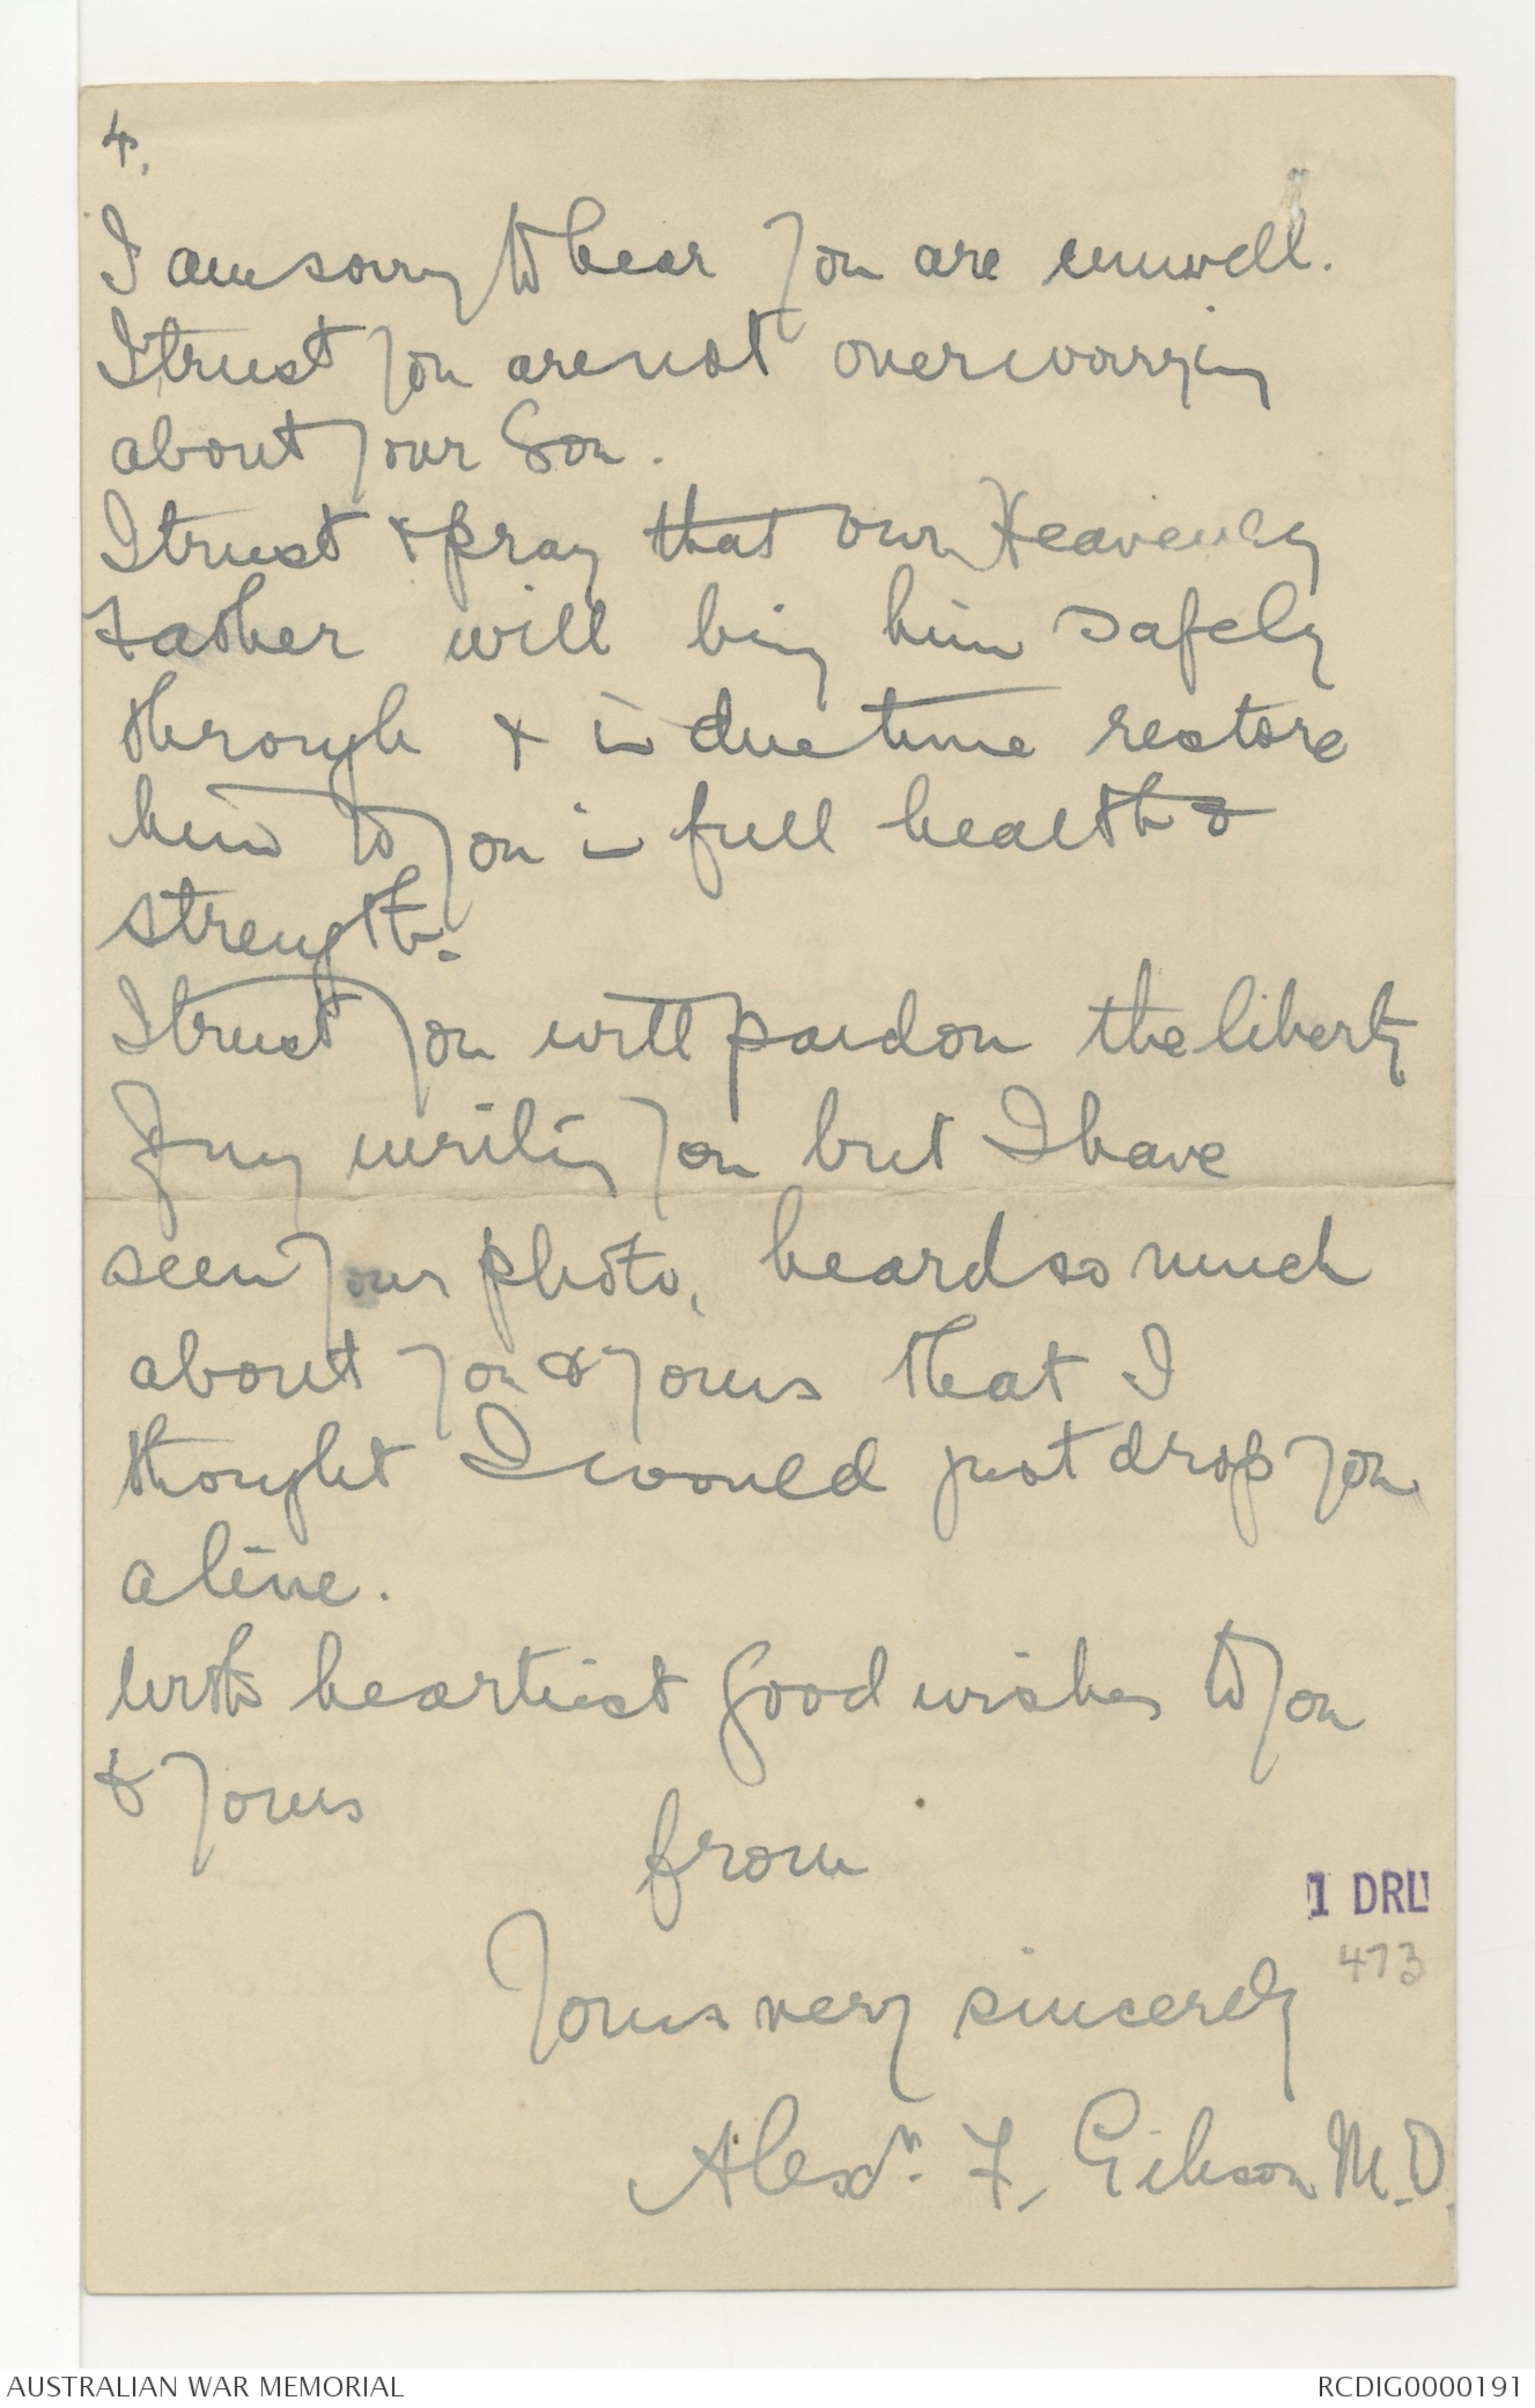 4.
I am sorry to hear you are unwell.
I trust you are not overworrying
about your Son.
I trust & pray that our Heavenly
Father will bring him safely
through & in due time restore
him to you in full health &
strength.
I trust you will pardon the liberty
of my writing you but I have
seen your photo, heard so much
about you & yours that I
thought I would just drop you
a line.
With heartiest good wishes to you
& yours
from
1 DRL
473
Yours very sincerely
Alexr. F. Gibson M.D.
AUSTRALIAN WAR MEMORIAL
RCDIG0000191